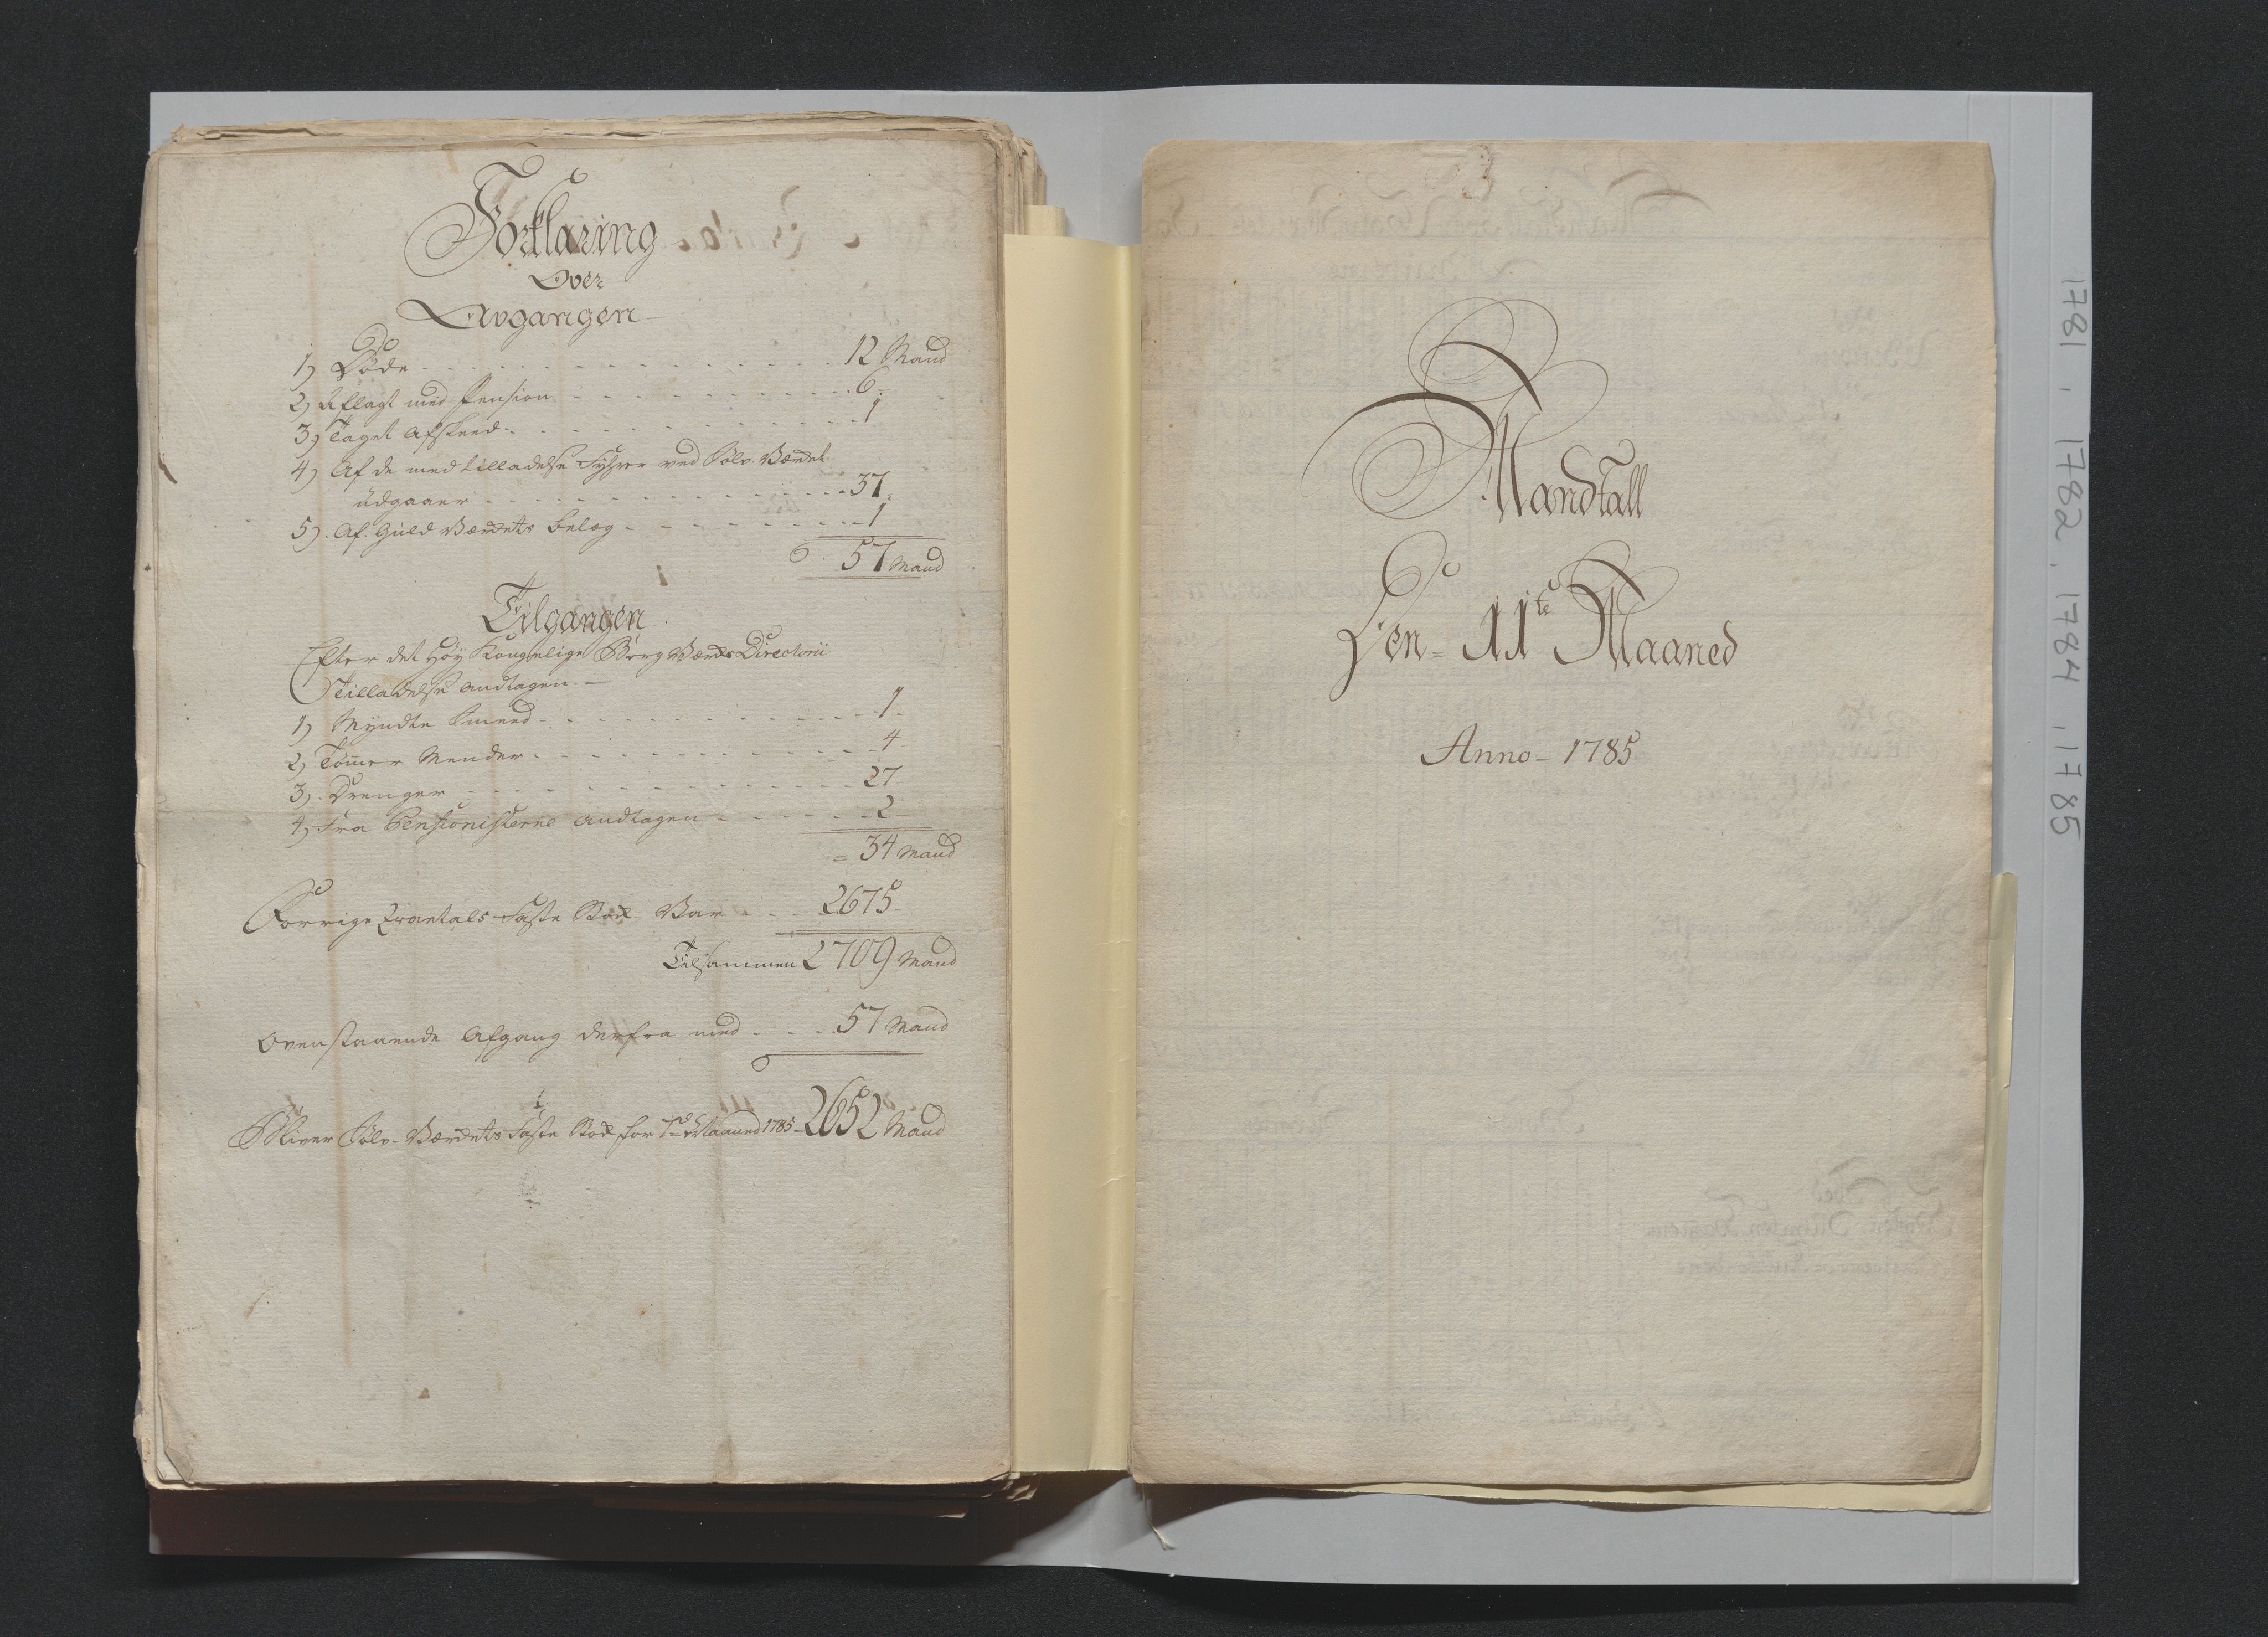 Forklaring
Over
Avgangen
1) Døde - - - 12 Mand
2) Aflagt med Pension - - - 6
3) Taget Afskeed - - - 1
4) Af de med tilladelse ved Sølv-Værket
udgaaer - - - 37
5) Af Guld Værkets belæg - - - 1
57 Mand
Tilgangen
Efter det Høy Kongelige Berg Værks Directorii
Tilladelse andtagen
1) Myndte Smeed - - - 1
2) Tømmer Mender - - - 4
3) Drenger - - - 27
4) Fra Pensionisterne andtagen - - - 2
= 34 Mand
Forrige Qvartals Faste Stok Var - - 2675
Tilsammen 2709 Mand
Ovenstaaende Afgang derfra med - - - 57 Mand
Bliver Sølv-Værkets Faste Stok for 7de Maaned 1785 - 2652 Mand
Mandtall
Den - 11te Maaned
Anno - 1785
1781, 1782, 1784, 1785